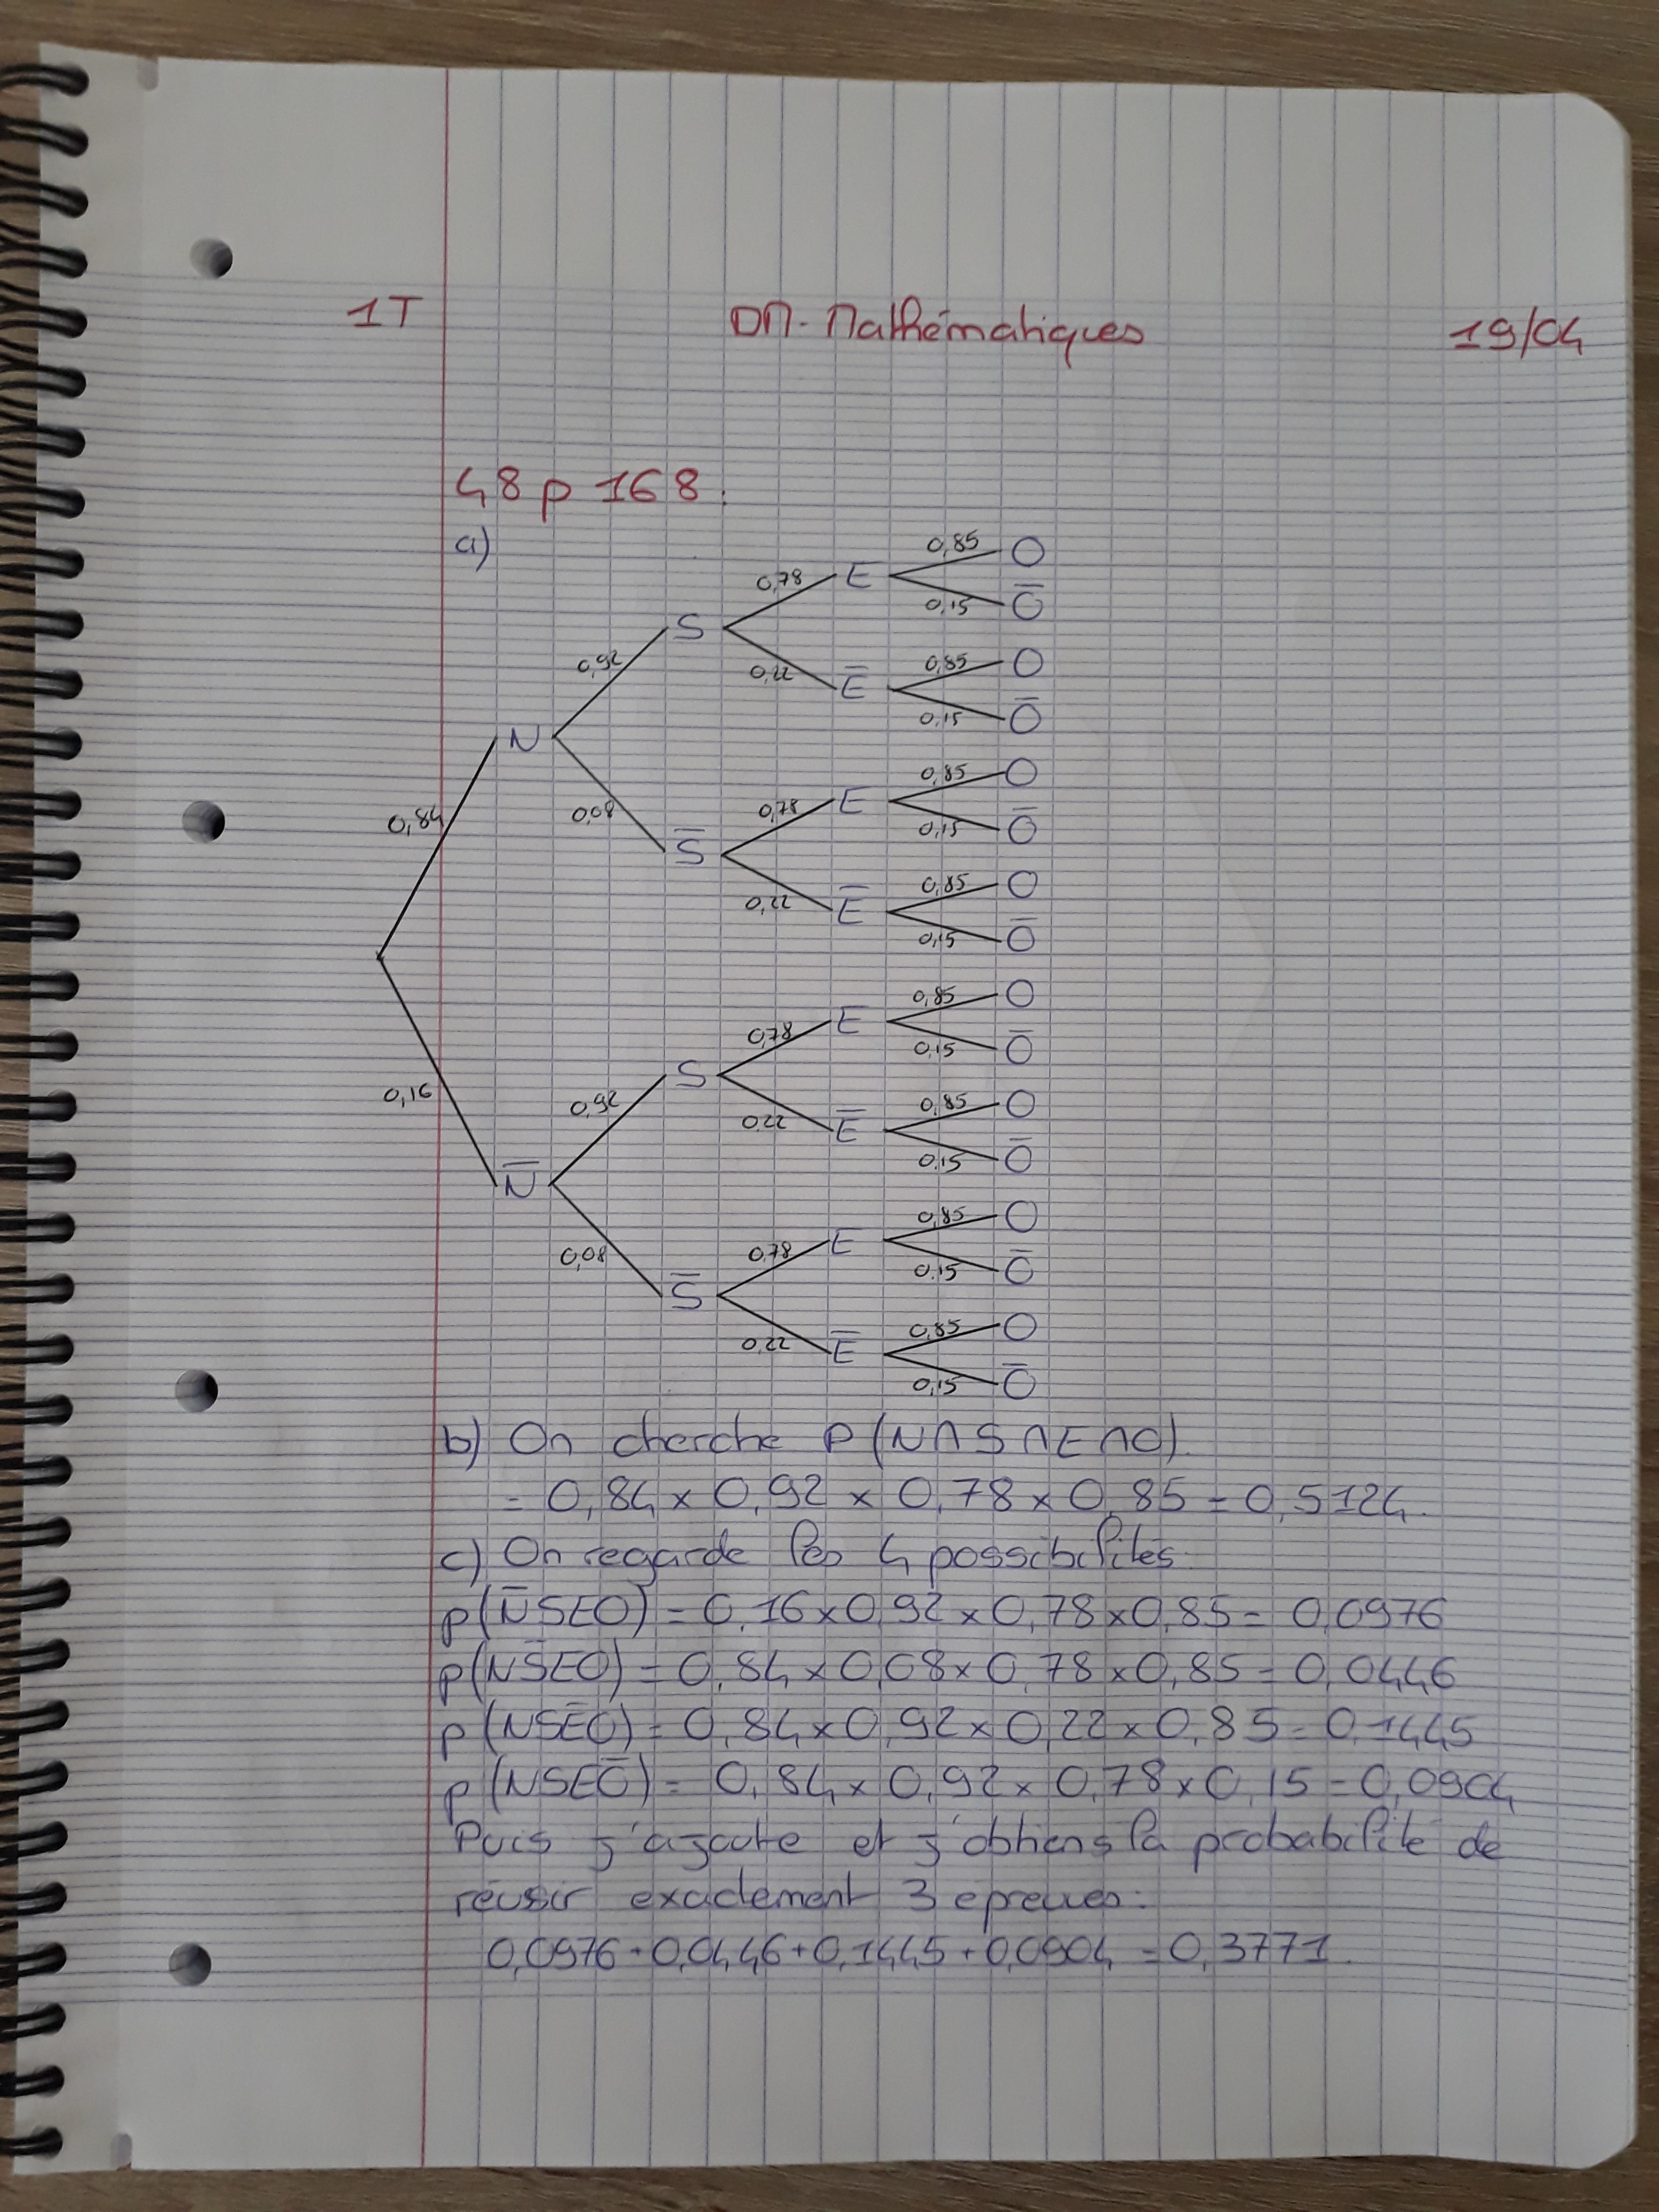 1T DM - Mathématiques 19/04
48 p 168.
a)
0,85 O
0,78 E
0,15 O̅
S
0,92 0,85 O
0,22 E̅
0,15 O̅
N
0,85 O
0,78 E
0,84 0,08 0,15 O̅
S̅
0,85 O
0,22 E̅
0,15 O̅
0,85 O
0,78 E
0,15 O̅
S
0,16 0,92 0,85 O
0,22 E̅
0,15 O̅
N̅
0,85 O
0,08 0,78 E
0,15 O̅
S̅
0,85 O
0,22 E̅
0,15 O̅
b) On cherche P(N∩S∩E∩O).
= 0,84 x 0,92 x 0,78 x 0,85 = 0,5124.
c) On regarde les 4 possibilités
p(N̅SEO) = 0,16 x 0,92 x 0,78 x 0,85 = 0,0976
p(NS̅EO) = 0,84 x 0,08 x 0,78 x 0,85 = 0,0446
p(NSE̅O) = 0,84 x 0,92 x 0,22 x 0,85 = 0,1445
p(NSEO̅) = 0,84 x 0,92 x 0,78 x 0,15 = 0,0904
Puis j'ajoute et j'obtiens la probabilité de
réussir exactement 3 épreuves:
0,0976 + 0,0446 + 0,1445 + 0,0904 = 0,3771.